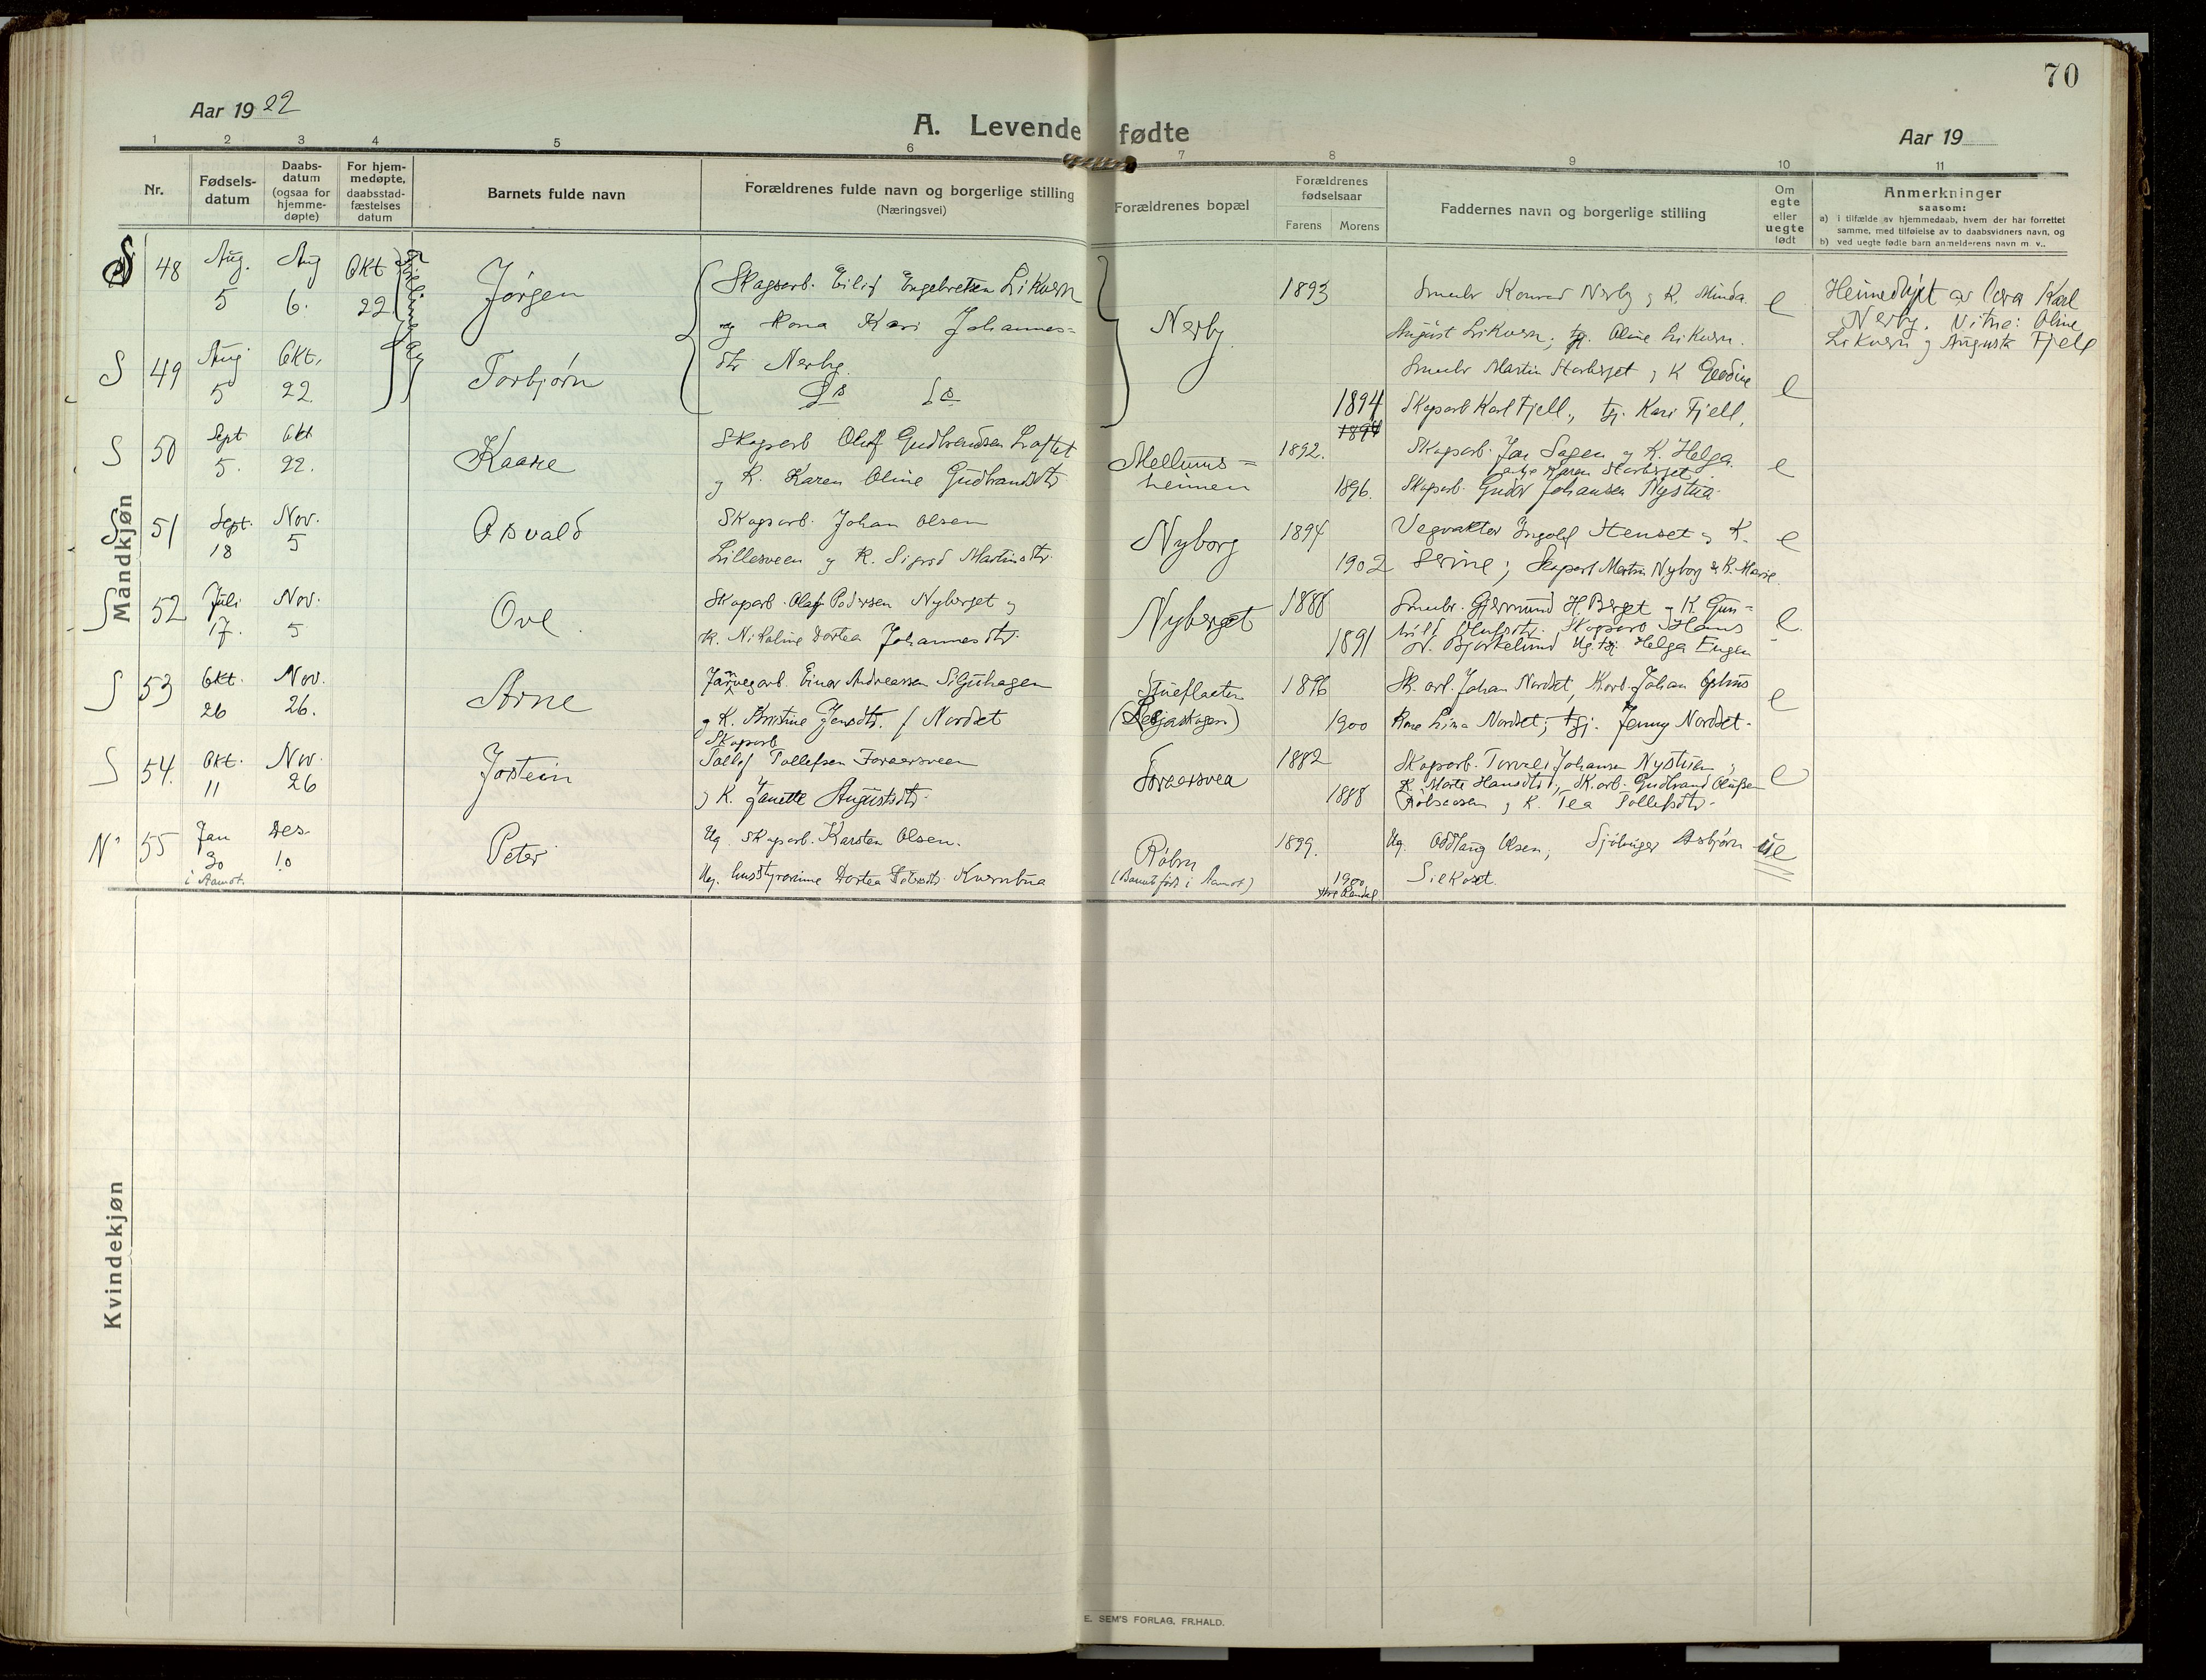 70
Aar 1922
A. Levende fødte
Aar 19
1 2 3 4 5 6 7 8 9 10 11
Nr.
Fødsels-
datum
Daabs-
datum
(ogsaa for
hjemme-
døpte)
For hjem-
medøpte,
daabsstad-
fæstelses
datum
Barnets fulde navn
Forældrenes fulde navn og borgerlige stilling
(Næringsvei)
Forældrenes bopæl
Forældrenes
fødselsaar
Farens Morens
Faddernes navn og borgerlige stilling
Om
egte
eller
uegte
født
Anmerkninger
saasom:
a) i tilfælde av hjemmedaab, hvem der har forrettet
samme, med tilføielse av to daabsvidners navn, og
b) ved uegte fødte barn anmelderens navn m. v..
Mandkjøn
S 48 Aug. 5 Aug 6. Okt 22
Tvillingar
Jørgen
Skogsarb. Eilif Engebretsen Likvern
og Kona Kari Johannes=
dtr Nerby.
Nerby
1893
Smbr Konrad Nerby og K. Minda
August Likvern; tj. Oline Likvern.
e
Heimedøpt av Karl
Nerby. Vitne: Oline
Likvern og Augusta Fjell
S 49 Aug 5 Okt. 22
Torbjørn
Do Do
1894
1894
Smbr Martin Storberget og K
Skogarb Karl Fjell, tj. Kari Fjell,
e
S 50 Sept 5. Okt 22.
Kaare
Skogarb Olaf Gudbrandsen Loftet
og K. Karen Oline Gudbrandsdtr
Mellums=
heimen
1892.
1896.
Skogarb. Jon Sagen og K. Helga.
Karen Storberget
Skogarb. Johansen Nystua
e
S 51 Sept. 18 Nov. 5
Asvald
Skogarb. Johan Olsen
Lillesveen og K. Sigrid Martinsdtr.
Nyborg
1894
1902
Vegvakter Ingolf Stenset og K.
Serine; Skogarb Martin Nyborg & K. Marie.
e
S 52 Juli 17. Nov. 5
Ove
Skogarb. Olaf Pedersen Nyberget og
K. Nikoline Dortea Johannesdtr.
Nyberget
1886
1891
Smbr. Gjermund H. Berget og K. Gun=
hild Olufsdtr. Skogarb Hans
Bjørkelund Ug. tj. Helga Engen
e
S 53 Okt. 26 Nov. 26.
Arne
Jarnvegarb. Einar Andreassen Siljuhagen
og K. Kristine Jensdtr. f Nordset
Tueflaeten
1896
1900
Sk. arb. Johan Nordset, K. arb. Johan Ophus
Kone Lina Nordset; tj. Jenny Nordset.
e
S 54. Okt. 11 Nov. 26
Jostein
Skogarb
Tollef Tollefsen Foraersveen
og K. Janette Augustsdtr.
Foraersvea
1882
1888
Skogarb. Torvald Johansen Nystuen og
K. Marte Hansdtr, Sk.arb. Gudbrand Olufsen
og K. Tea Tollefsdtr.
e
N 55 Jan 30 i Aamot. Des. 10
Peter
Ug. Skogarb. Karsten Olsen.
Ug. husstyrarinne Dortea Kvernbua
Røbru
(Barnet født i Aamot)
1899.
1900
Ug. Oddlaug Olsen, Asbjørn
ue
Kvindekjøn
E. SEM'S FORLAG, FR.HALD.